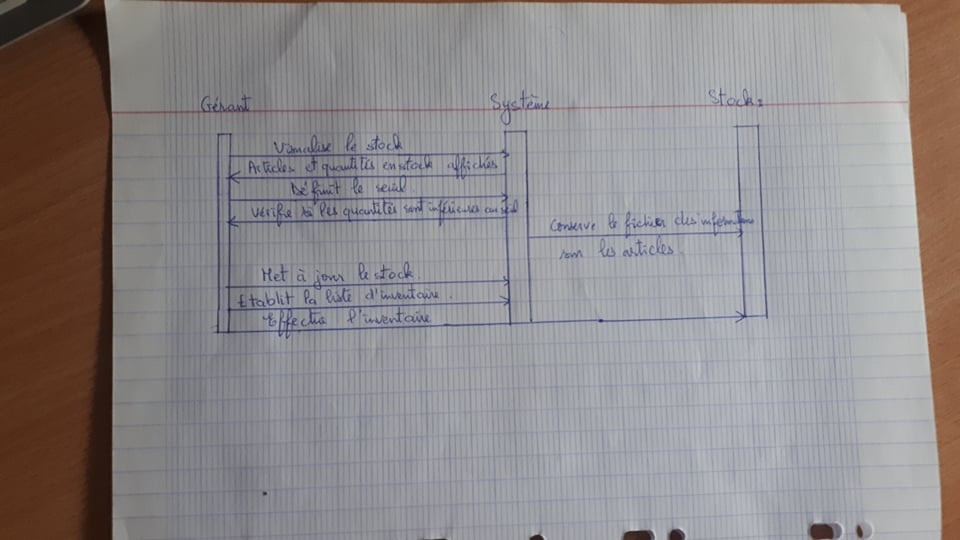 Gérant Système Stock:
Visualise le stock
Articles et quantités en stock affichés
Définit le seuil.
Vérifie si les quantités sont inférieures au seuil
Conserve le fichier des informations
sur les articles.
Met à jour le stock.
Établit la liste d'inventaire.
Effectue l'inventaire